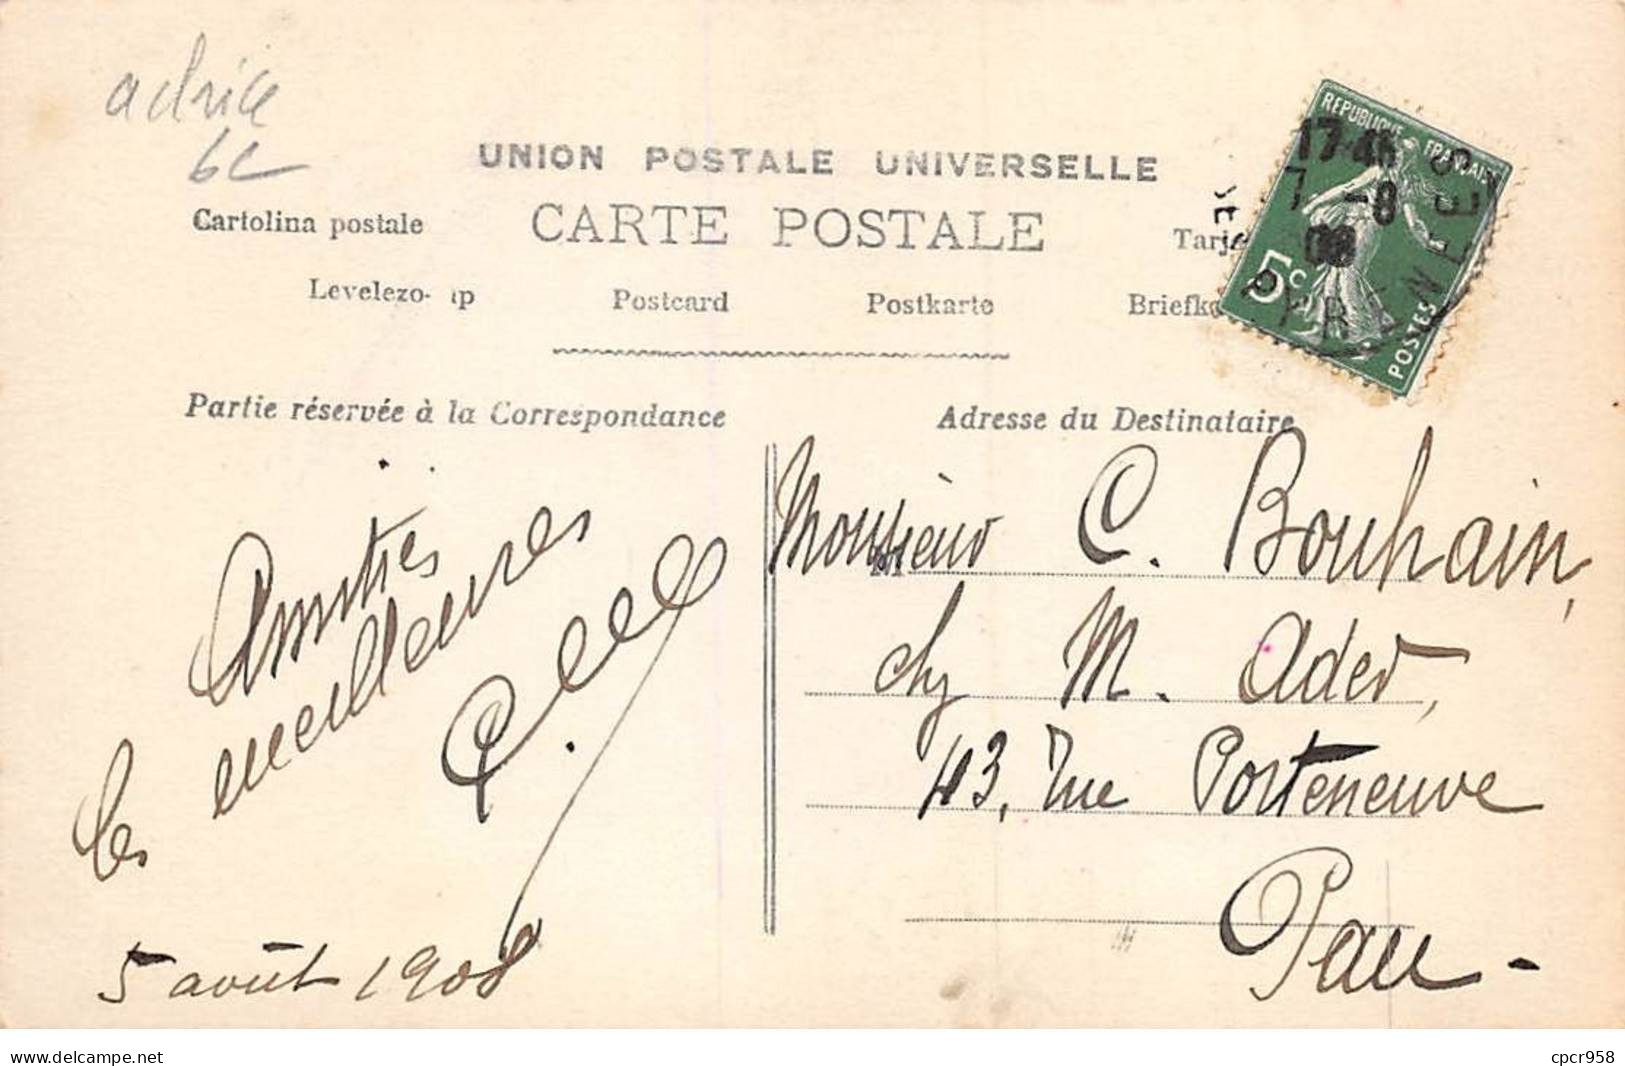 6c
UNION POSTALE UNIVERSELLE
CARTE POSTALE
Cartolina postale
Levelezo- ap
Postcard
Postkarte
REPUBLIQUE FRANCAISE
5c
POSTES
17-45
7 -8
08
PYRENEES
Partie réservée à la Correspondance
Adresse du Destinataire
Amitiés
meilleures
5 août 1908
Monsieur C. Bouhain,
chez M. Ader,
43, rue Porteneuve
Pau -
www.delcampe.net
cpcr958